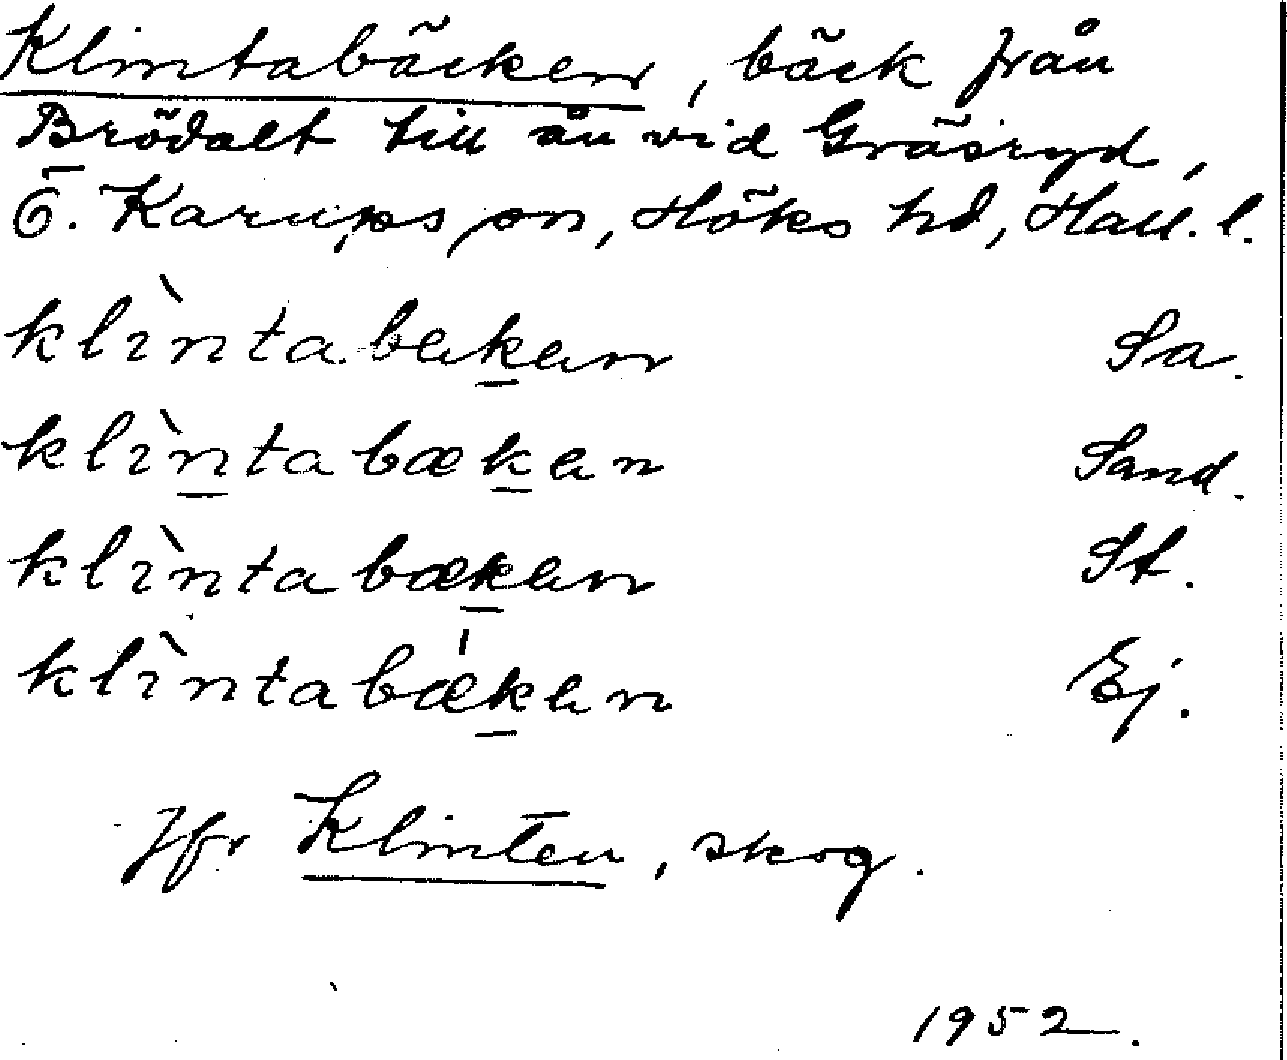 Klintabäcken, bäck från
Brödalt till ån vid Gräsryd,
Ö. Karups sn, Höks hd, Hall. l.
klìntabekan Sa.
klìntabækan Sand.
klìntabækan St.
klìntabæ̍kan Ej.
Jfr Klinten, skog.
1952.